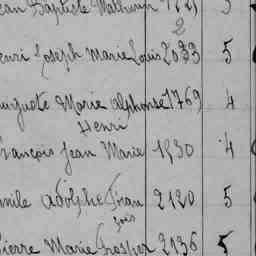 ean Baptiste Mathurin 1729 5
2
enri Joseph Marie Louis 2033 5
uiguete Marie Alphonse 1769 4
Henri
rançois Jean Marie 1930 4
mile Adolphe Fran 2120 5
çois
Pierre Marie Prosper 2136 5